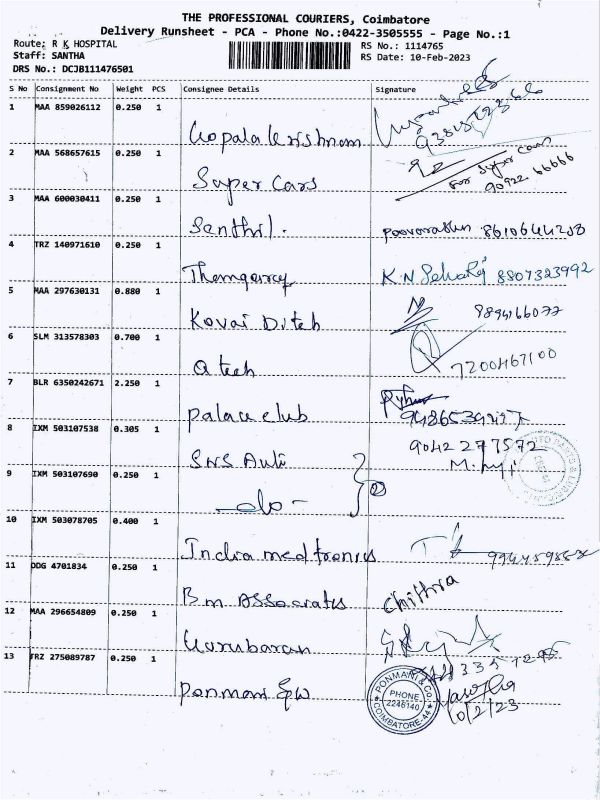 THE PROFESSIONAL COURIERS, Coimbatore
Delivery Runsheet - PCA - Phone No.:0422-3505555 - Page No.:1
Route: R K HOSPITAL
RS No.: 1114765
Staff: SANTHA
RS Date: 10-Feb-2023
DRS No.: DCJB111476501
S No Consignment No Weight PCS Consignee Details Signature
1 MAA 859026112 0.250 1
Gopala Krishnan
2 MAA 568657615 0.250 1
Super Cars
For Super Cars
90922 66666
3 MAA 600030411 0.250 1
Senthil. 8610644208
4 TRZ 140971610 0.250 1
K.N Selvaraj 8807323992
5 MAA 297630131 0.880 1
Kovai Ditch 9894166077
6 SLM 313578303 0.700 1
Q tech 7200467100
7 BLR 6350242671 2.250 1
Palace club
8 IXM 503107538 0.305 1
9042277572
SNS Auti
9 IXM 503107690 0.250 1
- do - 2
10 IXM 503078705 0.400 1
India medtronics
11 DDG 4701834 0.250 1
B.m Associates Chithra
12 MAA 296654809 0.250 1
Gurubaran
13 TRZ 275089787 0.250 1
Ponmani
PONMANI & Co.
PHONE
2246140
COIMBATORE-44
10/2/23